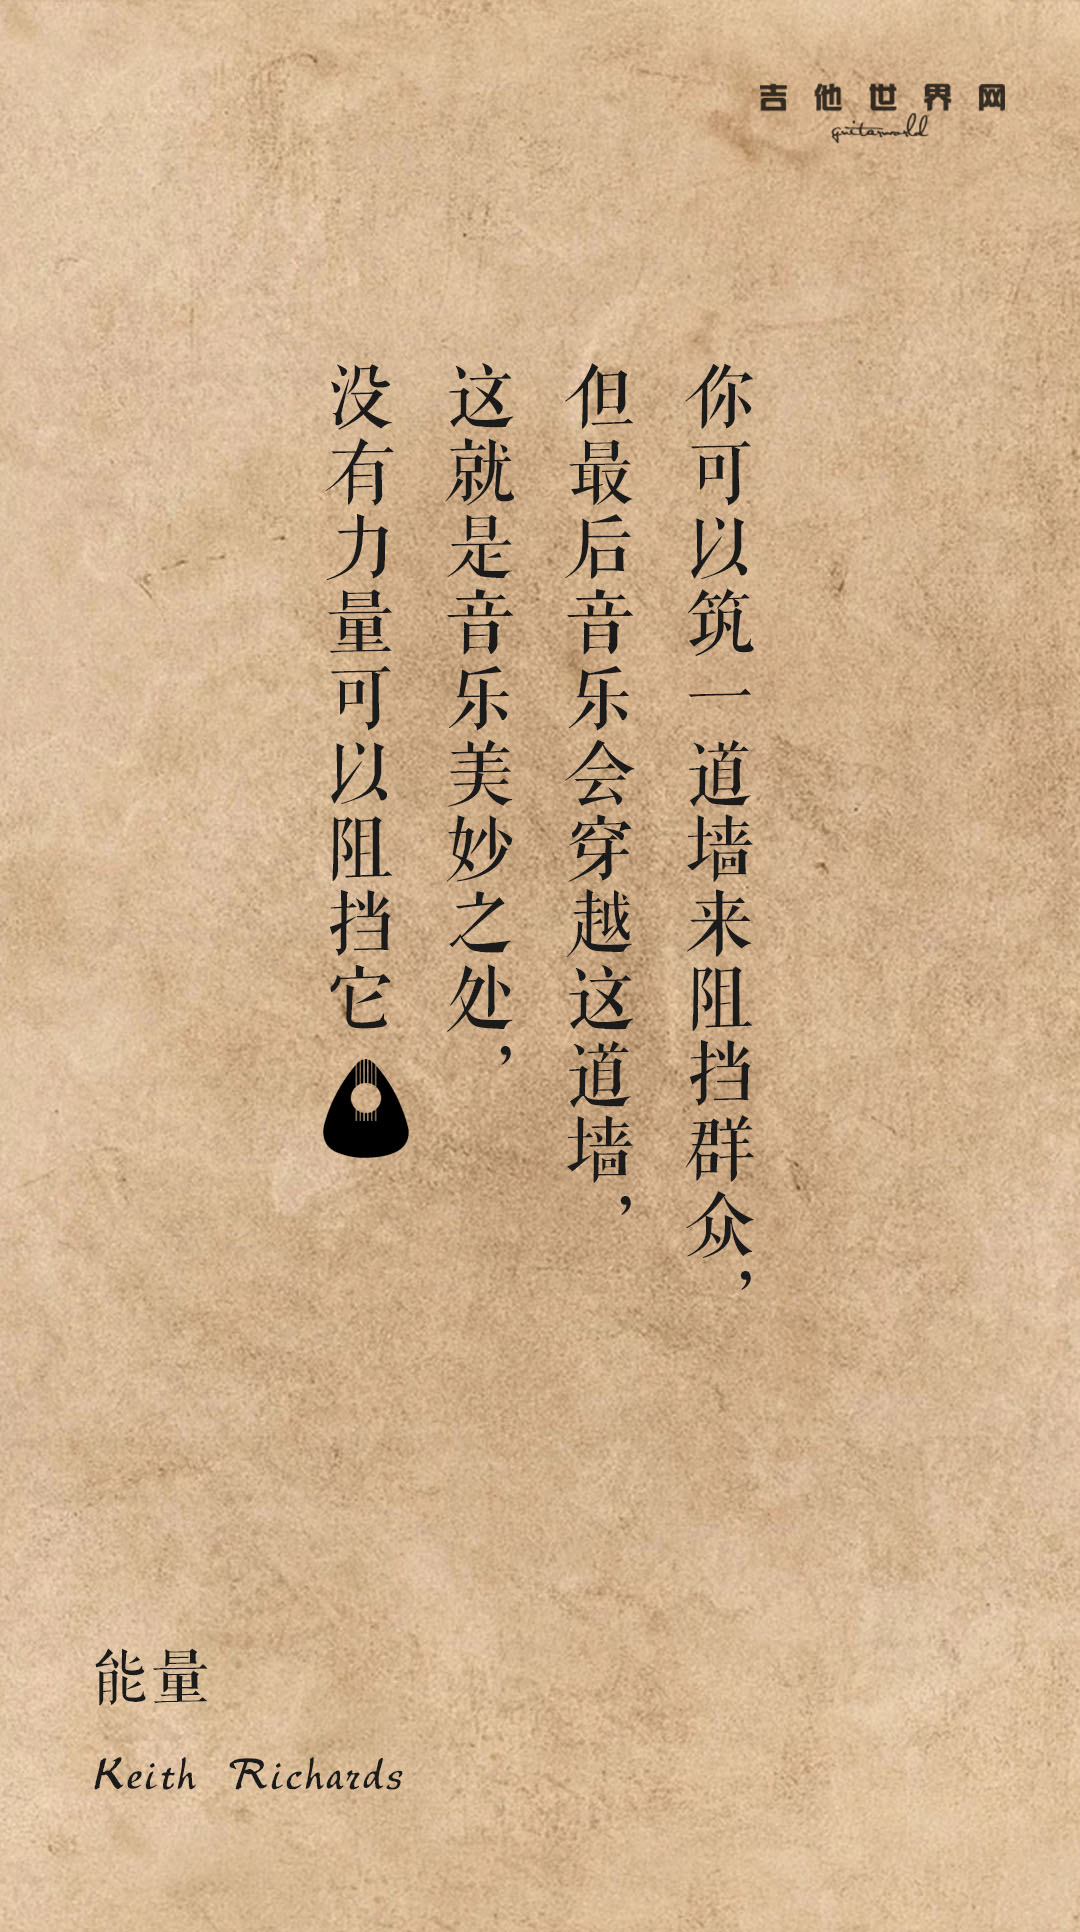 吉他世界网
guitarworld
你可以筑一道墙来阻挡群众，
但最后音乐会穿越这道墙，
这就是音乐美妙之处，
没有力量可以阻挡它
能量
Keith Richards